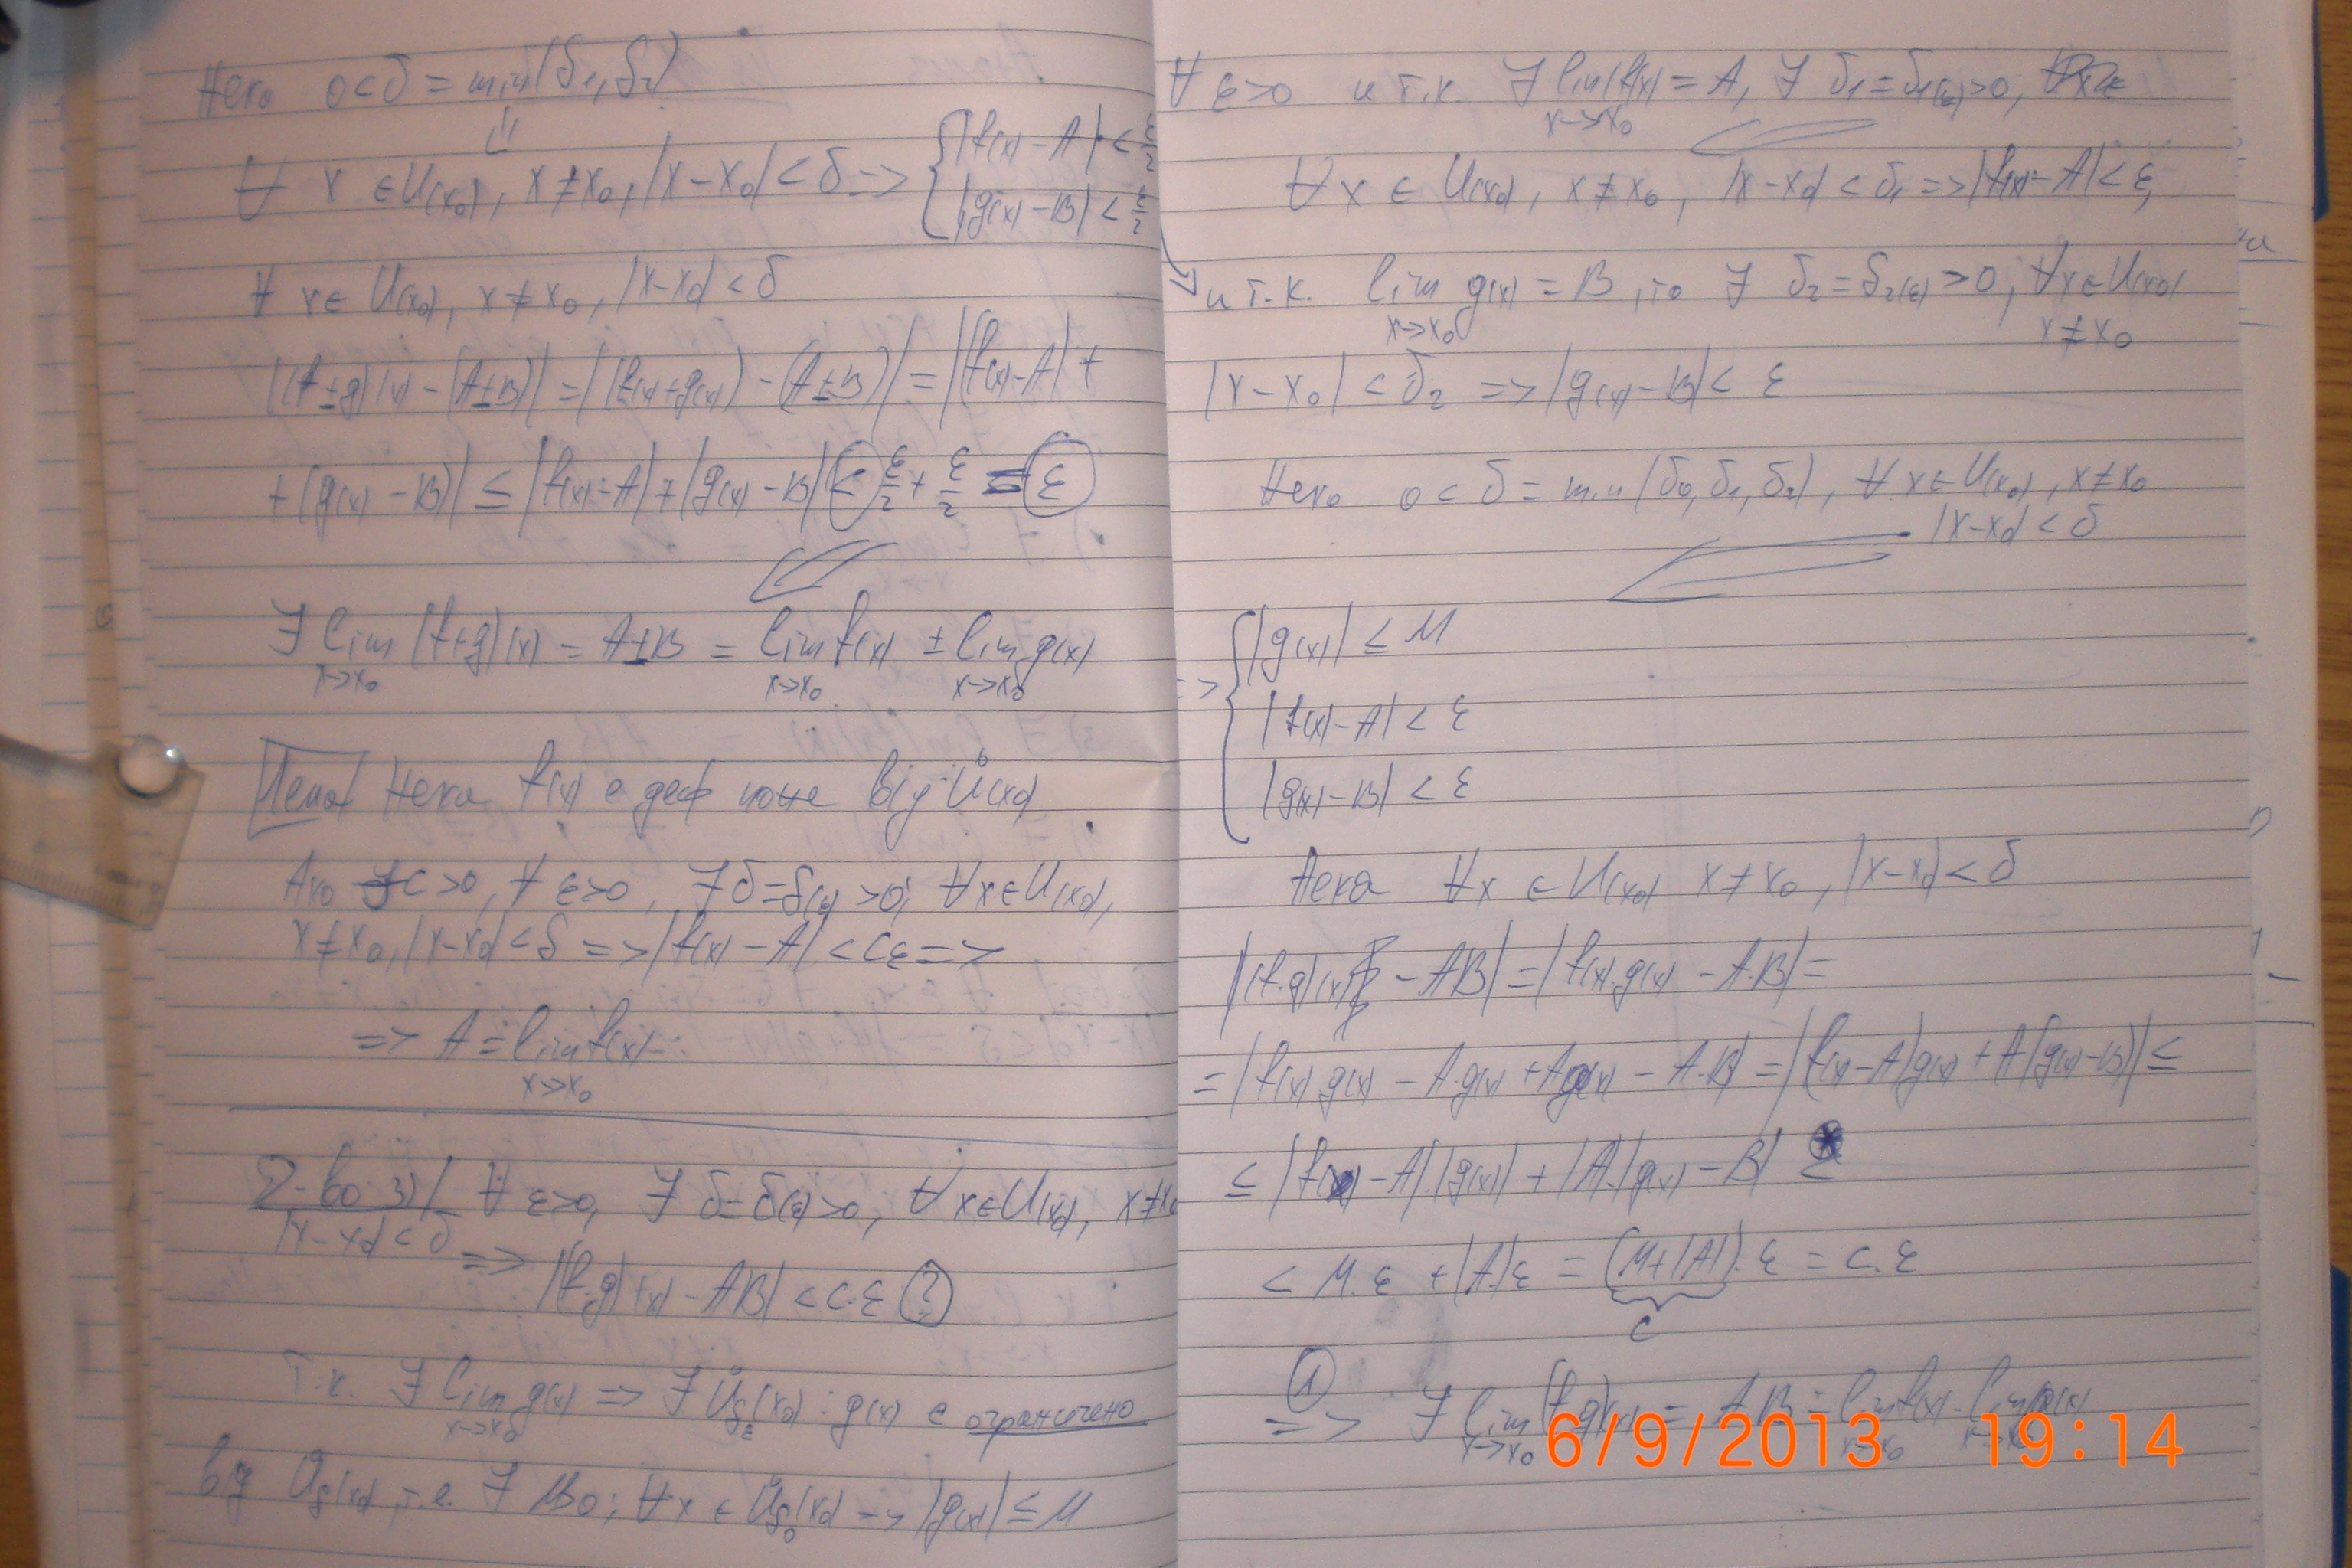 Нека 0 < δ = min(δ₁, δ₂)
∀ x ∈ U(x₀), x ≠ x₀, |x - x₀| < δ => { |f(x) - A| < ε/2
|g(x) - B| < ε/2
∀ x ∈ U(x₀), x ≠ x₀, |x - x₀| < δ
|(f ± g)(x) - (A ± B)| = |(f(x) + g(x)) - (A ± B)| = |(f(x) - A) +
+ (g(x) - B)| ≤ |f(x) - A| + |g(x) - B| < ε/2 + ε/2 = ε
∃ lim (f + g)(x) = A ± B = lim f(x) ± lim g(x)
x->x₀ x->x₀ x->x₀
Лема Нека f(x) е деф поне в/у Ů(x₀)
Ако ∃ C > 0, ∀ ε > 0, ∃ δ = δ(ε) > 0; ∀x ∈ U(x₀),
x ≠ x₀, |x - x₀| < δ => |f(x) - A| < Cε =>
=> A = lim f(x)
x->x₀
Д-во 3) ∀ ε > 0, ∃ δ = δ(ε) > 0, ∀ x ∈ U(x₀), x ≠ x₀
|x - x₀| < δ => |(f.g)(x) - AB| < C.ε ?
Т.к. ∃ lim g(x) => ∃ Ů (x₀) : g(x) е ограничено
x->x₀
в/у Ůδ(x₀), т.е. ∃ M>0; ∀x ∈ Ůδ₀(x₀) => |g(x)| ≤ M
∀ ε > 0 и т.к. ∃ lim f(x) = A, ∃ δ₁ = δ₁(ε) > 0;
x->x₀
∀ x ∈ U(x₀), x ≠ x₀, |x - x₀| < δ₁ => |f(x) - A| < ε,
и т.к. lim g(x) = B, то ∃ δ₂ = δ₂(ε) > 0; ∀x ∈ U(x₀)
x->x₀ x ≠ x₀
|x - x₀| < δ₂ => |g(x) - B| < ε
Нека 0 < δ = min(δ₀, δ₁, δ₂), ∀ x ∈ U(x₀), x ≠ x₀
|x - x₀| < δ
=> { |g(x)| ≤ M
|f(x) - A| < ε
|g(x) - B| < ε
Нека ∀x ∈ U(x₀) x ≠ x₀, |x - x₀| < δ
|(f.g)(x) - AB| = |f(x).g(x) - A.B| =
= |f(x)g(x) - A.g(x) + Ag(x) - A.B| = |(f(x) - A)g(x) + A(g(x) - B)| ≤
≤ |f(x) - A|.|g(x)| + |A|.|g(x) - B| ≤ *
< M.ε + |A|ε = (M + |A|).ε = C.ε
C
1
=> ∃ lim (f.g)(x) = A.B = lim f(x) . lim g(x)
x->x₀ x->x₀ x->x₀
6/9/2013 19:14